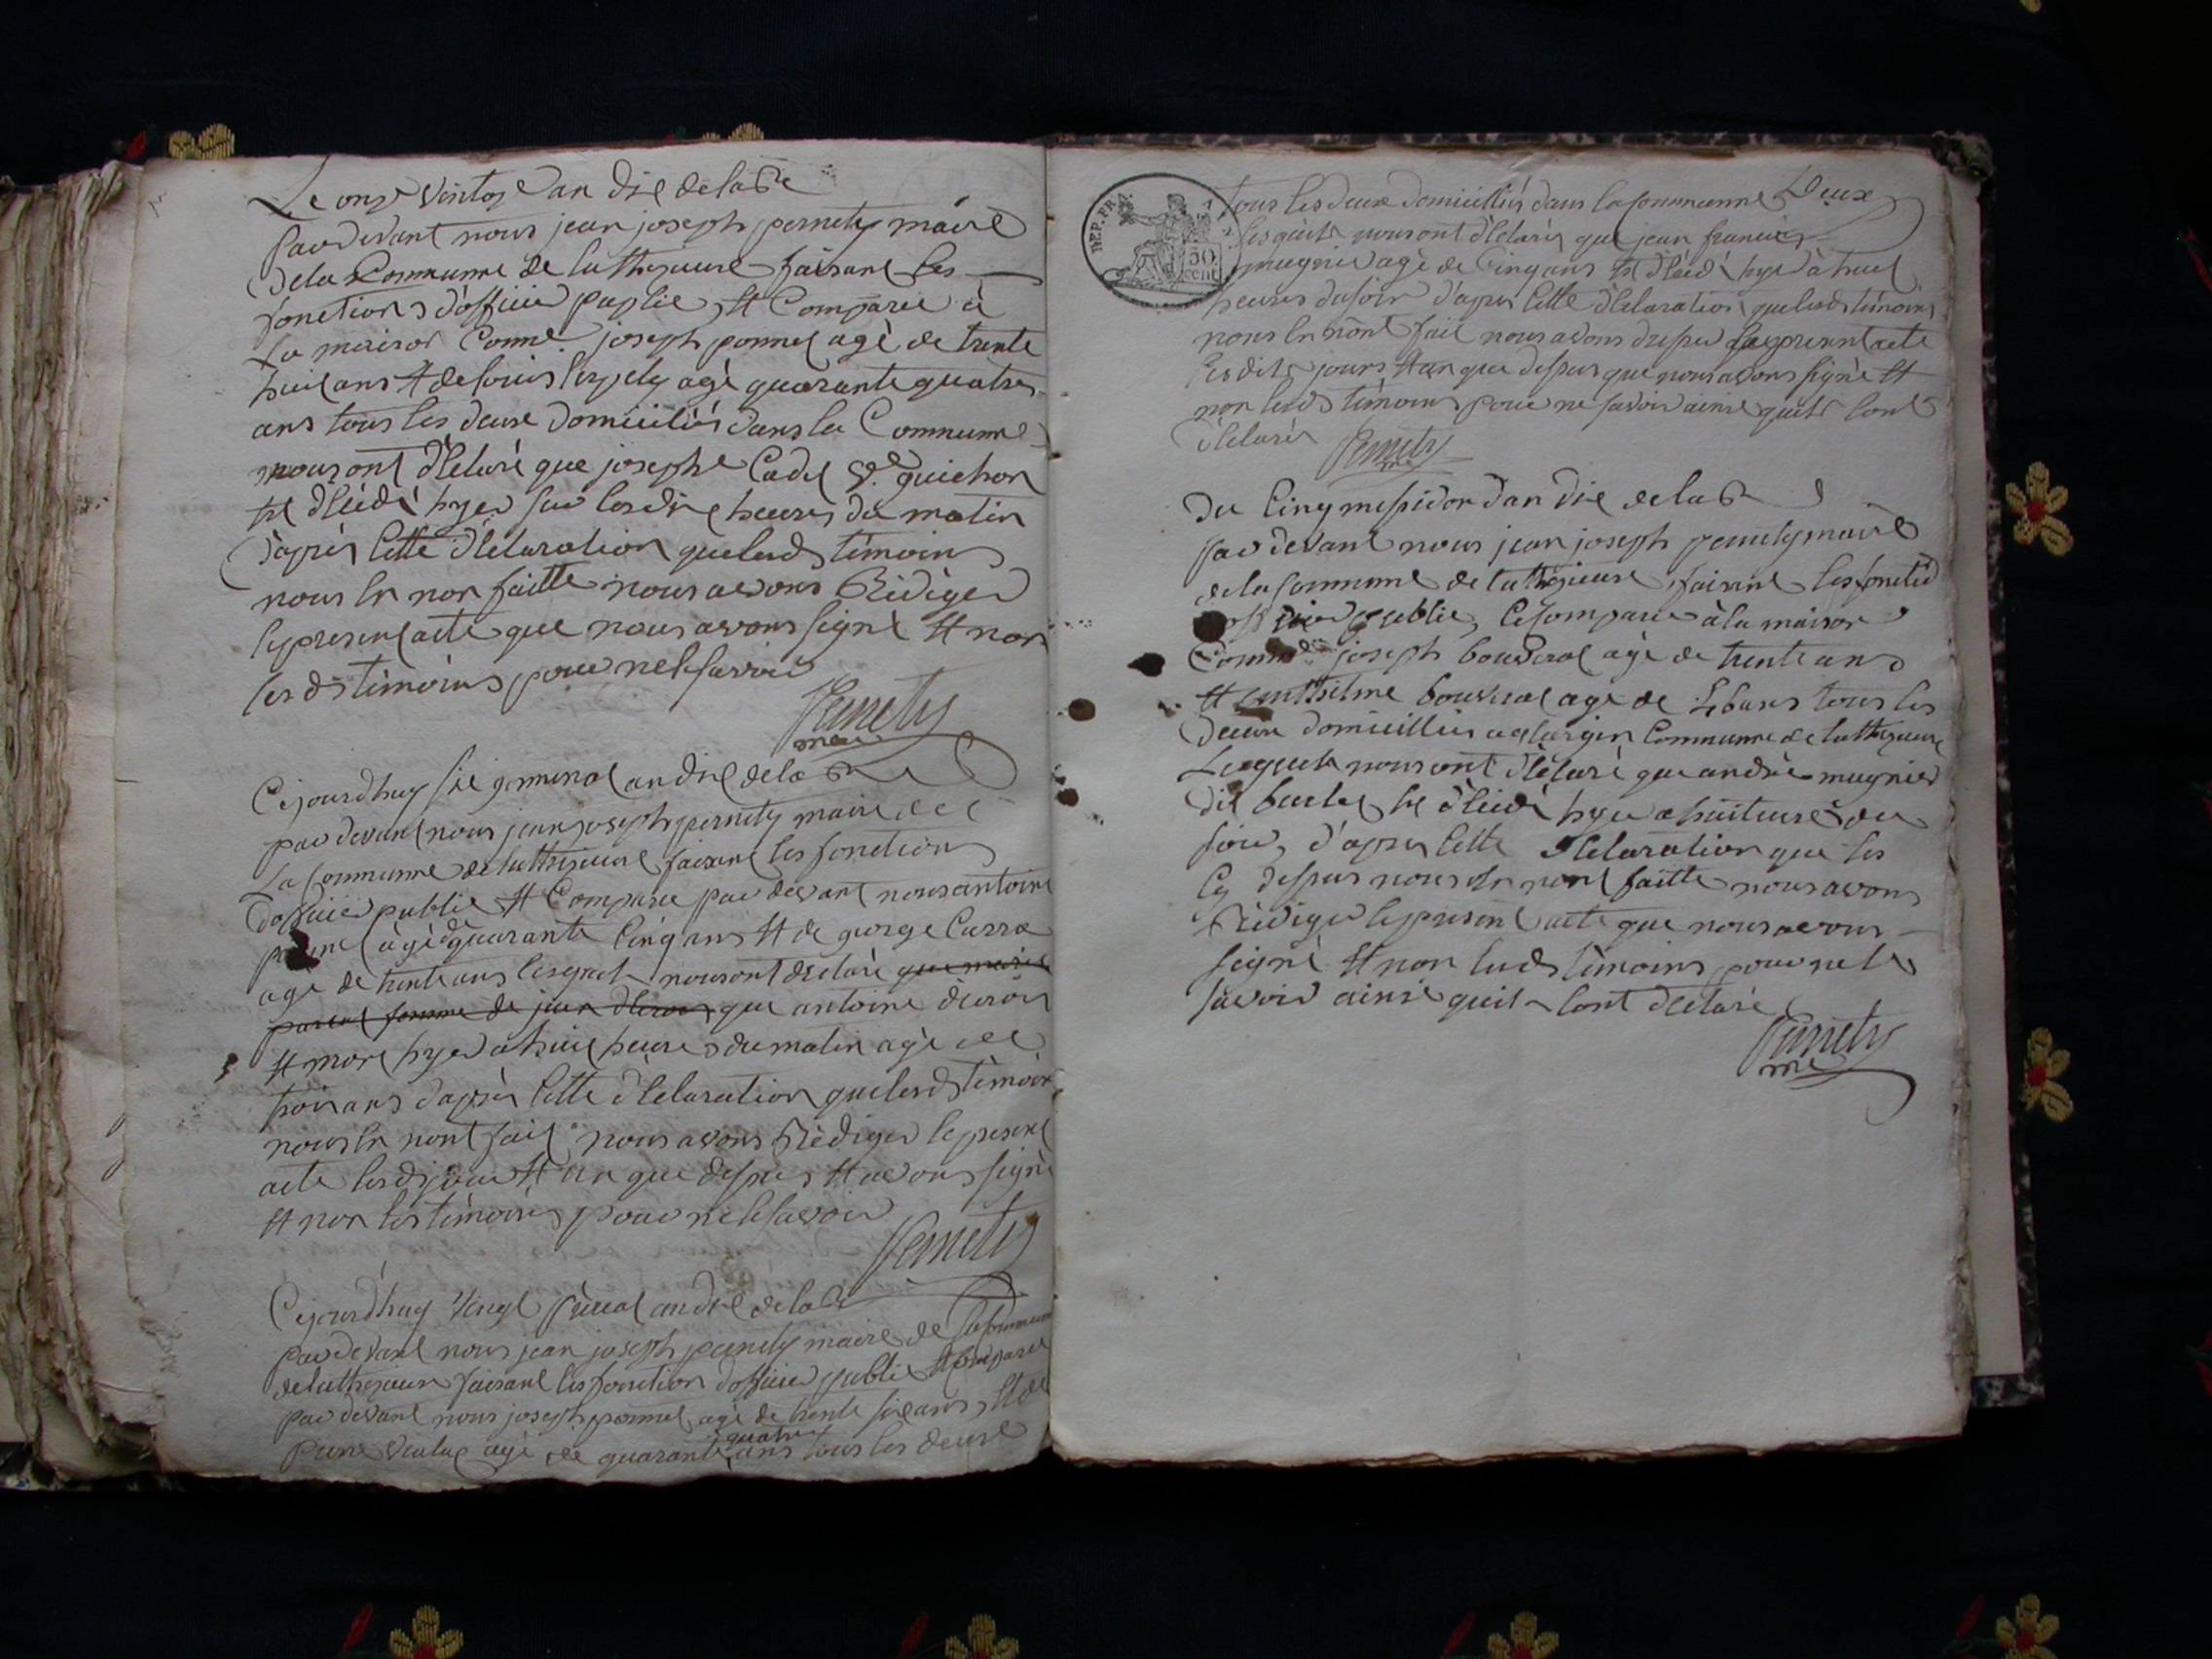 Le onze ventose an dix de la Re
par devant nous jean joseph pernety maire
de la Commune de lathuieure faisant les
fonctions d'officier puplic, et Comparu à
la maison Comne. joseph ponnet agé de trente
huit ans et de louis agé quarante quatre
ans tous les deux domiciliés dans la Commune
nous ont déclaré que joseph Cadet ve. guichon
est décédé hyer sur les dix heures du matin
d'après cette déclaration que lesds témoins
nous en non faitte nous avons Rédiger
le present acte que nous avons signé et non
lesds témoins pour ne le savoir
Pernety
maire
Cejourdhuy six germinal an dix de la Re
par devant nous jean joseph pernety maire de
La Commune de lathuieure faisant les fonctions
d'officier public et Comparu par devant nous antoine
agé de quarante Cinq ans et de george Carra
agé de trente ans lesquels nous ont déclaré que marie
femme de jean que antoine
et mort hyer a huit heures du matin agé de
trois ans d'après cette déclaration que lesds témoins
nous en nont fait nous avons Rédiger le present
acte lesds jour et an que dessus et avons signé
et non les témoins pour ne le savoir
Pernety
Cejourdhuy vingt prérial an dix de la Re
par devant nous jean joseph pernety maire de la Commune
de lathuieure faisant les fonction d'officier public et Comparu
par devant nous joseph ponnet agé de trente six ans, et de
agé de quarante quatre ans tous les deux
DEP. FR.
50
cent
tous les deux domiciliés dans la Commune Deux
lesquels nous ont déclarés que jean francois
mugnier agé de Cinq ans est décédé hyer à huit
heures du soir d'après cette déclaration que lesds témoins
nous en nont fait nous avons dressé le present acte
lesdits jours et an que dessus que nous avons signé et
non lesds témoins pour ne savoir ainsi quils lont
déclarés
Pernety
me
Du Cinq messidor d'an dix de la Re
par devant nous jean joseph pernety maire
de la Commune de lathuieure, faisant les
officier public, Comparu à la maison
Comne. joseph bouverat agé de trente ans
et anthelme bouverat agé de ans tous les
deux domiciliés Commune de lathuieure
Lesquels nous ont déclaré que andré mugnier
dit est décédé hyer a huit heures du
soir, d'après cette déclaration que les
Cy dessus nous en nont faitte nous avons
Rédiger le present acte que nous avons
signé et non lesds témoins pour ne le
savoir ainsi quils lont déclaré
Pernety
me